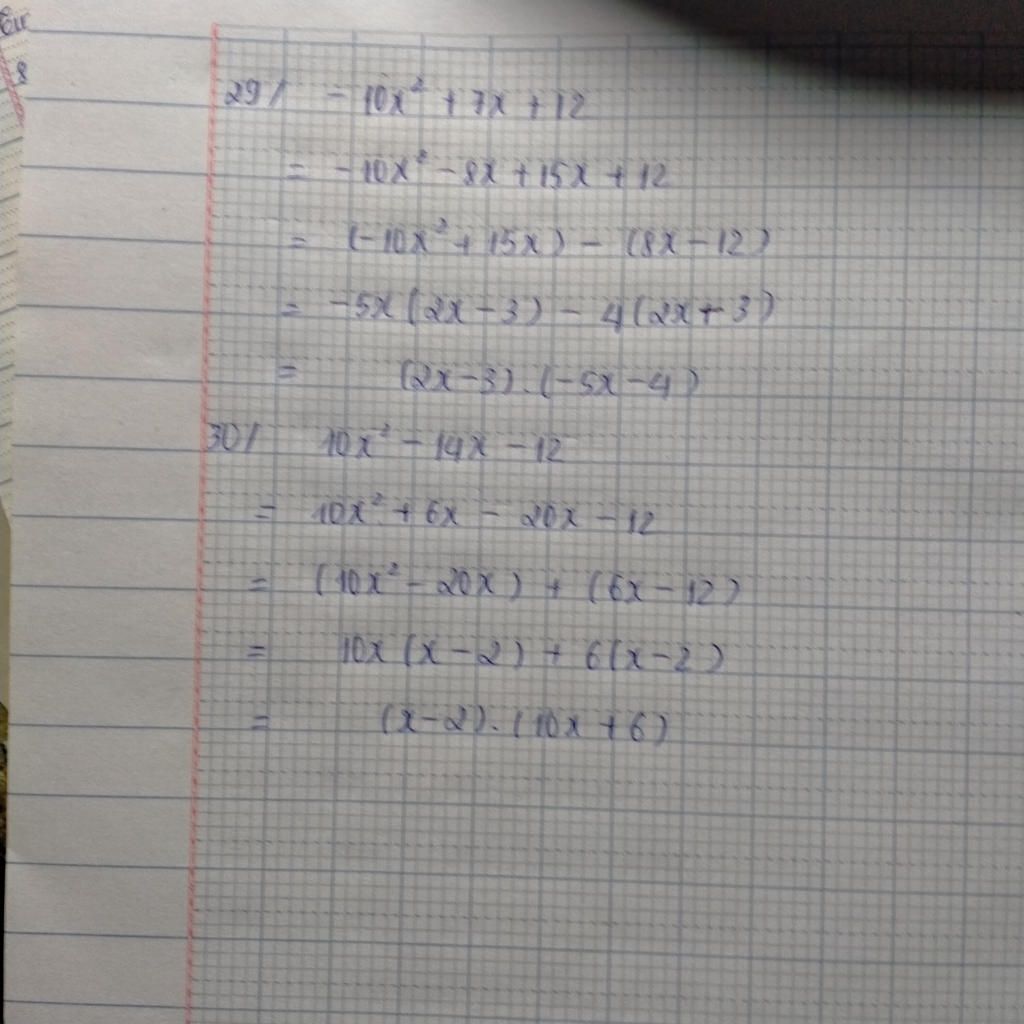 8
29/ -10x² + 7x + 12
= -10x² - 8x + 15x + 12
= (-10x² + 15x) - (8x - 12)
= -5x(2x - 3) - 4(2x + 3)
= (2x - 3).(-5x - 4)
30/ 10x² - 14x - 12
= 10x² + 6x - 20x - 12
= (10x² - 20x) + (6x - 12)
= 10x(x - 2) + 6(x - 2)
= (x - 2).(10x + 6)